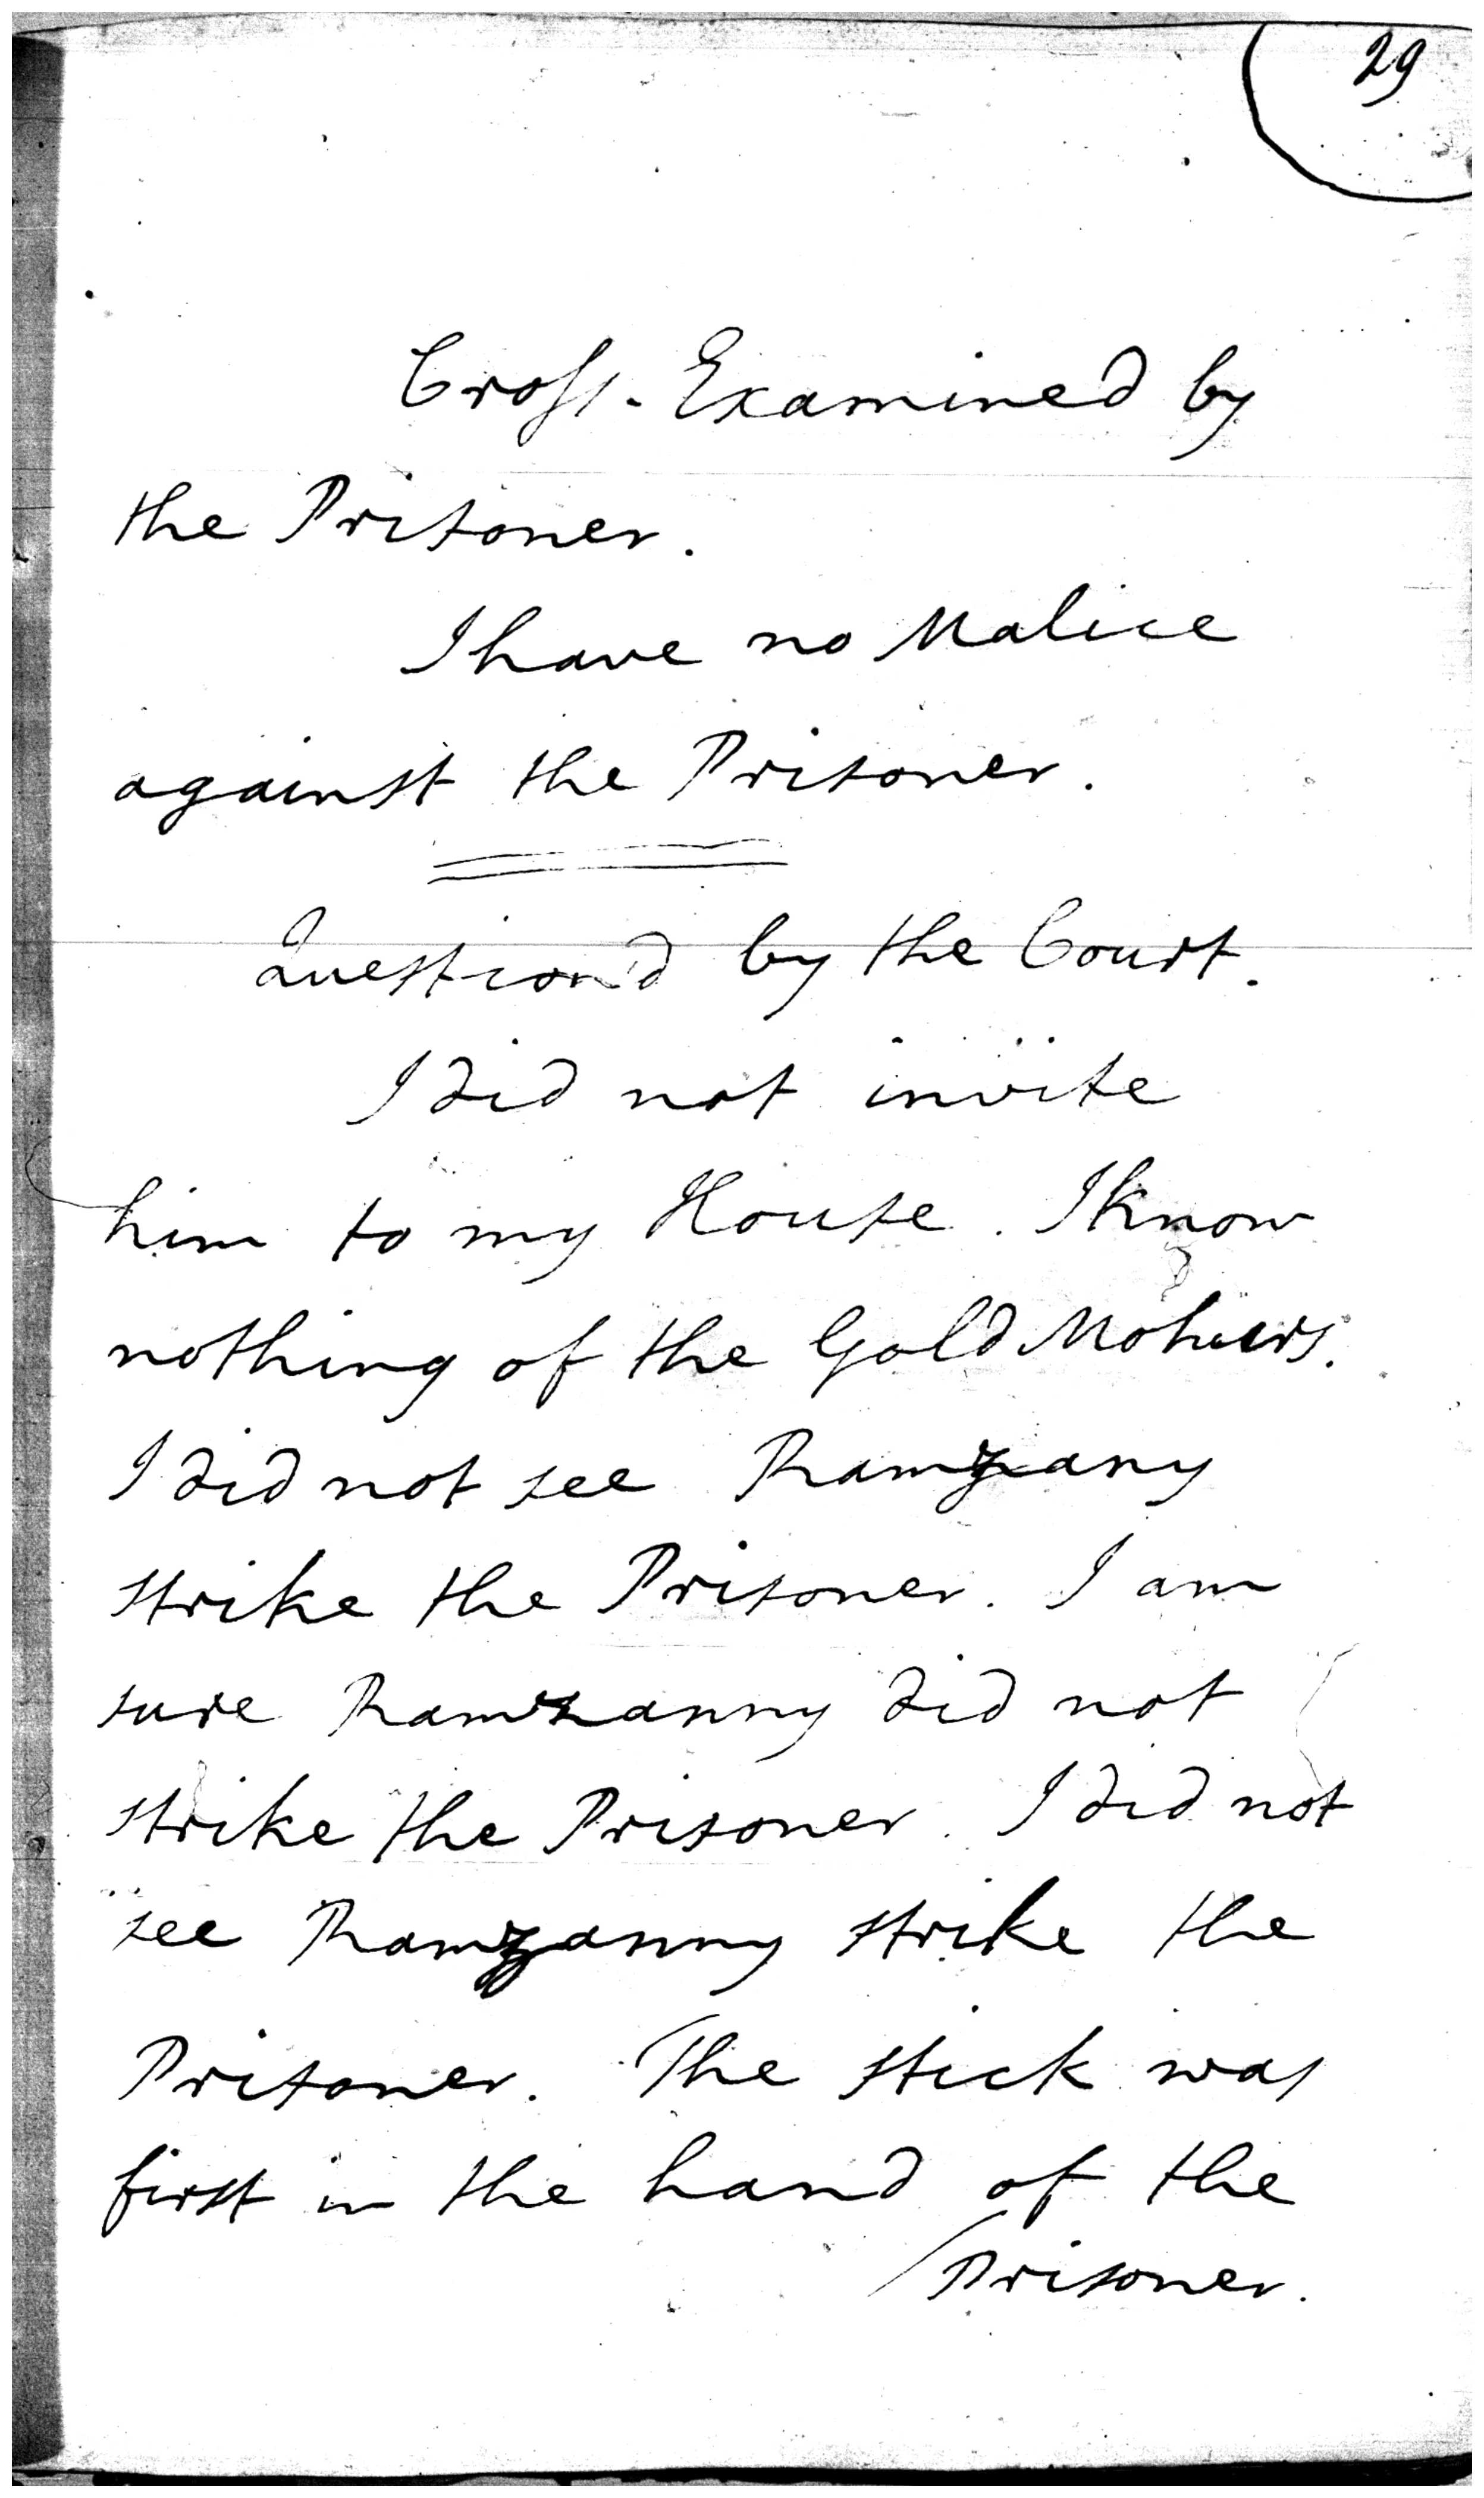 29
Cross-Examined by
the Prisoner.
I have no Malice
against the Prisoner.
Question'd by the Court.
I did not invite
him to my House. I know
nothing of the Gold Mohurs.
I did not see Ramzany
strike the Prisoner. I am
sure Ramzanny did not
strike the Prisoner. I did not
see Ramzanny strike the
Prisoner. The stick was
first in the hand of the
Prisoner.